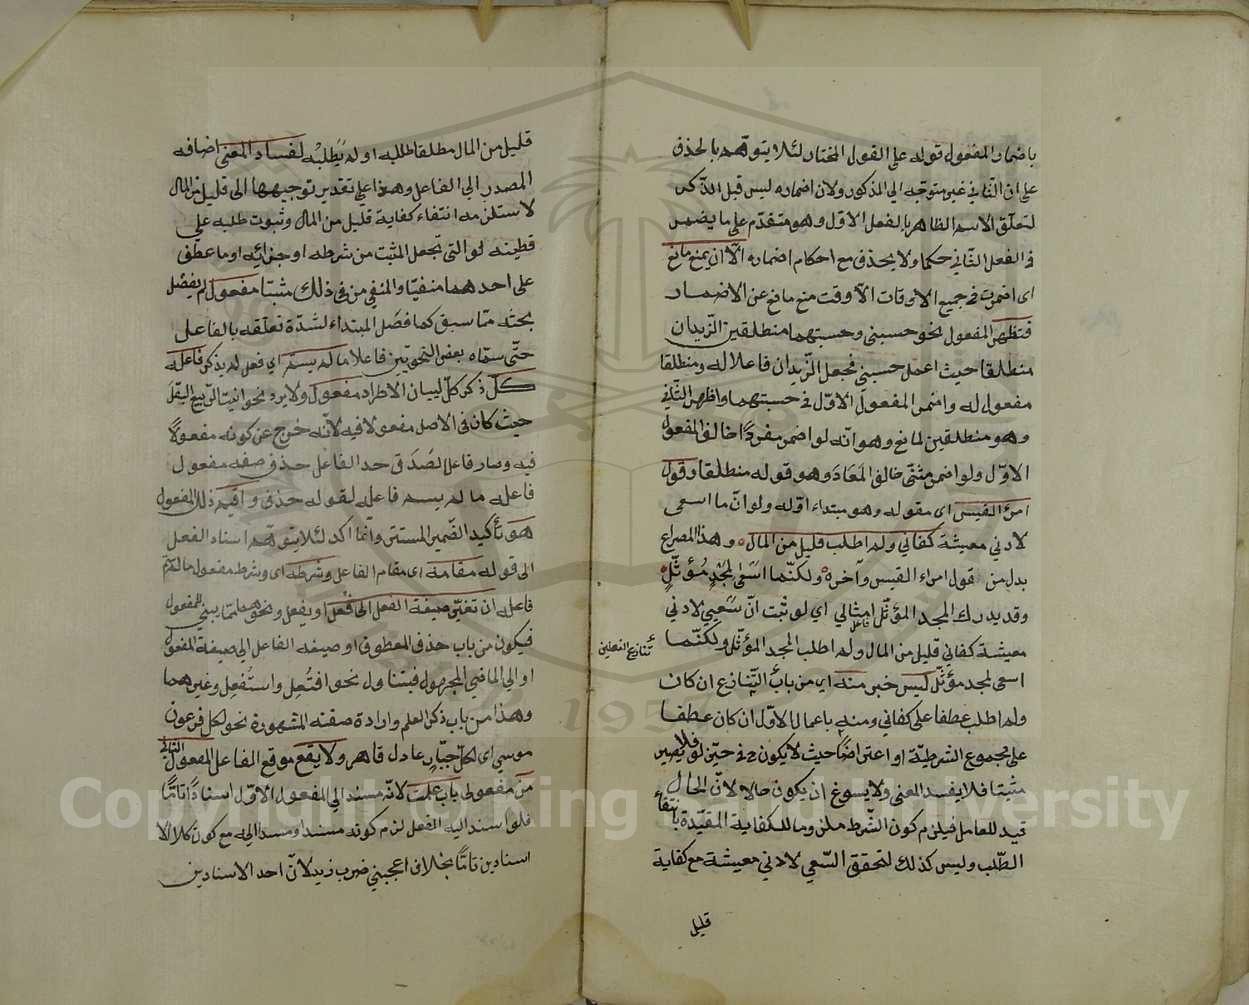 باضمار المفعول قوله على القول المختار لئلا يتوهم بالحذف
على ان الثاني غير متوجه الى المذكور ولان اضماره ليس قبل الذكر
لتعلق الاسم الظاهر بالفعل الاول وهو متقدم على ما يضمر
في الفعل الثاني حكما ولا يحذف مع احكام اضماره الا ان يمنع مانع
اى اضمرت في جميع الاوقات الا وقت منع مانع عن الاضمار
فتظهر المفعول نحو حسبني وحسبتهما منطلقين الزيدان
منطلقا حيث اعمل حسبني فجعل الزيدان فاعلا له ومنطلقا
مفعولا له واضمر المفعول الاول في حسبتهما واظهر الثاني
وهو منطلقين لمانع وهو انه لو اضمر مفردا خالف المفعول
الاول ولو اضمر مثنى خالف المعاد وهو قوله منطلقا وقول
امرئ القيس اى مقوله وهو مبتداء اوله ولو ان ما اسعى
لادنى معيشة كفاني ولم اطلب قليل من المال وهذا المصراع
بدل من قول امراء القيس وآخره ولكنما اسعى لمجد مؤثل
وقد يدرك المجد المؤثل امثالي اى لو ثبت ان سعيي لادنى
معيشة كفاني قليل من المال ولم اطلب المجد المؤثل ولكنما
تنازع الفعلين
اسعى لمجد مؤثل ليس خبر منه اى من باب التنازع ان كان
ولم اطلب عطفا على كفاني ومنه باعمال الاول ان كان عطفا
على مجموع الشرطية او اعتراضا حيث لا يكون في حيز لو فلا يصير
مثبتا فلا يفسد المعنى ولا يسوغ ان يكون حالا لان الحال
قيد للعامل فيلزم كون الشرط ملزوما للكفاية المقيدة بانتفاء
الطلب وليس كذلك لتحقق السعي لادنى معيشة مع كفاية
قليل
قليل من المال مطلقا طلبه او لم يطلبه لفساد المعنى اضافه
المصدر الى الفاعل وهذا على تقدير توجيهها الى قليل من المال
لاستلزمه انتفاء كفاية قليل من المال وثبوت طلبه على
قضية لو التى تجعل المثبت من شرطه او جزائه او ما عطف
على احدهما منفيا والمنفي من في ذلك مثبتا مفعول لم يفصل
بحثه مما سبق كما فصل المبتداء لشدة تعلقه بالفاعل
حتى سماه بعض النحويين فاعلا ما لم يسم اى فعل لم يذكر فاعله
كل ذكر كل لبيان الاطراد مفعول ولا يرد نحو انبت الربيع البقل
حيث كان في الاصل مفعولا فيه لانه خرج عن كونه مفعولا
فيه وصار فاعلا لصدق حد الفاعل حذف صفه مفعول
فاعله ما لم يسم فاعله لقوله حذف واقيم ذلك المفعول
هو تأكيد الضمير المستتر وانما اكد لئلا يتوهم اسناد الفعل
الى قوله مقامه اى مقام الفاعل وشرطه اى وشرط مفعول ما لم يسم
فاعله ان تغير صيغة الفعل الى فعل او يفعل ونحوهما مما يبنى للمفعول
فيكون من باب حذف المعطوف او صيغه الفاعل الى صيغة المفعول
او الى الماضي المجهول فيتناول نحو افتعل واستفعل وغيرهما
وهذا من باب ذكر العلم وارادة صفته المشهورة نحو لكل فرعون
موسى اى لكل جبار عادل قاهر ولا يقع موقع الفاعل المفعول الثاني
من مفعولى باب علمت لانه مسند الى المفعول الاول اسنادا تاما
فلو اسند اليه الفعل لزم كونه مسندا ومسندا اليه مع كون كلا الا
اسنادين تاما بخلاف اعجبني ضرب زيد لان احد الاسنادين
Copyright © King Saud University
1957